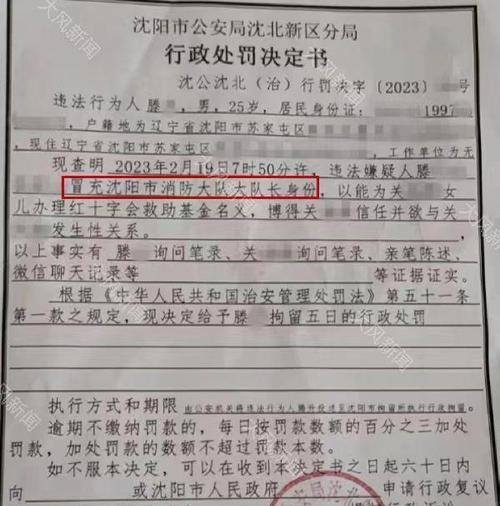 沈阳市公安局沈北新区分局
行政处罚决定书
沈公沈北(治)行罚决字〔2023〕 号
违法行为人滕 ,男,25岁,居民身份证: 1997
,户籍地为辽宁省沈阳市苏家屯区
,现住辽宁省沈阳市苏家屯区 ,工作单位为无
现查明 2023年2月19日7时50分许,违法嫌疑人滕
冒充沈阳市消防大队大队长身份,以能为关 女
儿办理红十字会救助基金名义,博得关 信任并欲与关
发生性关系。
以上事实有 滕 询问笔录、关 询问笔录、亲笔陈述、
微信聊天记录等 等证据证实。
根据《中华人民共和国治安管理处罚法》第五十一条
第一款之规定,现决定给予滕 拘留五日的行政处罚
执行方式和期限 由公安机关将违法行为人滕 投送至沈阳市拘留所执行行政拘留。
逾期不缴纳罚款的,每日按罚款数额的百分之三加处
罚款,加处罚款的数额不超过罚款本数。
如不服本决定,可以在收到本决定书之日起六十日内
向 或沈阳市人民政府 申请行政复议
大风新闻
大风新闻
大风新闻
大风新闻